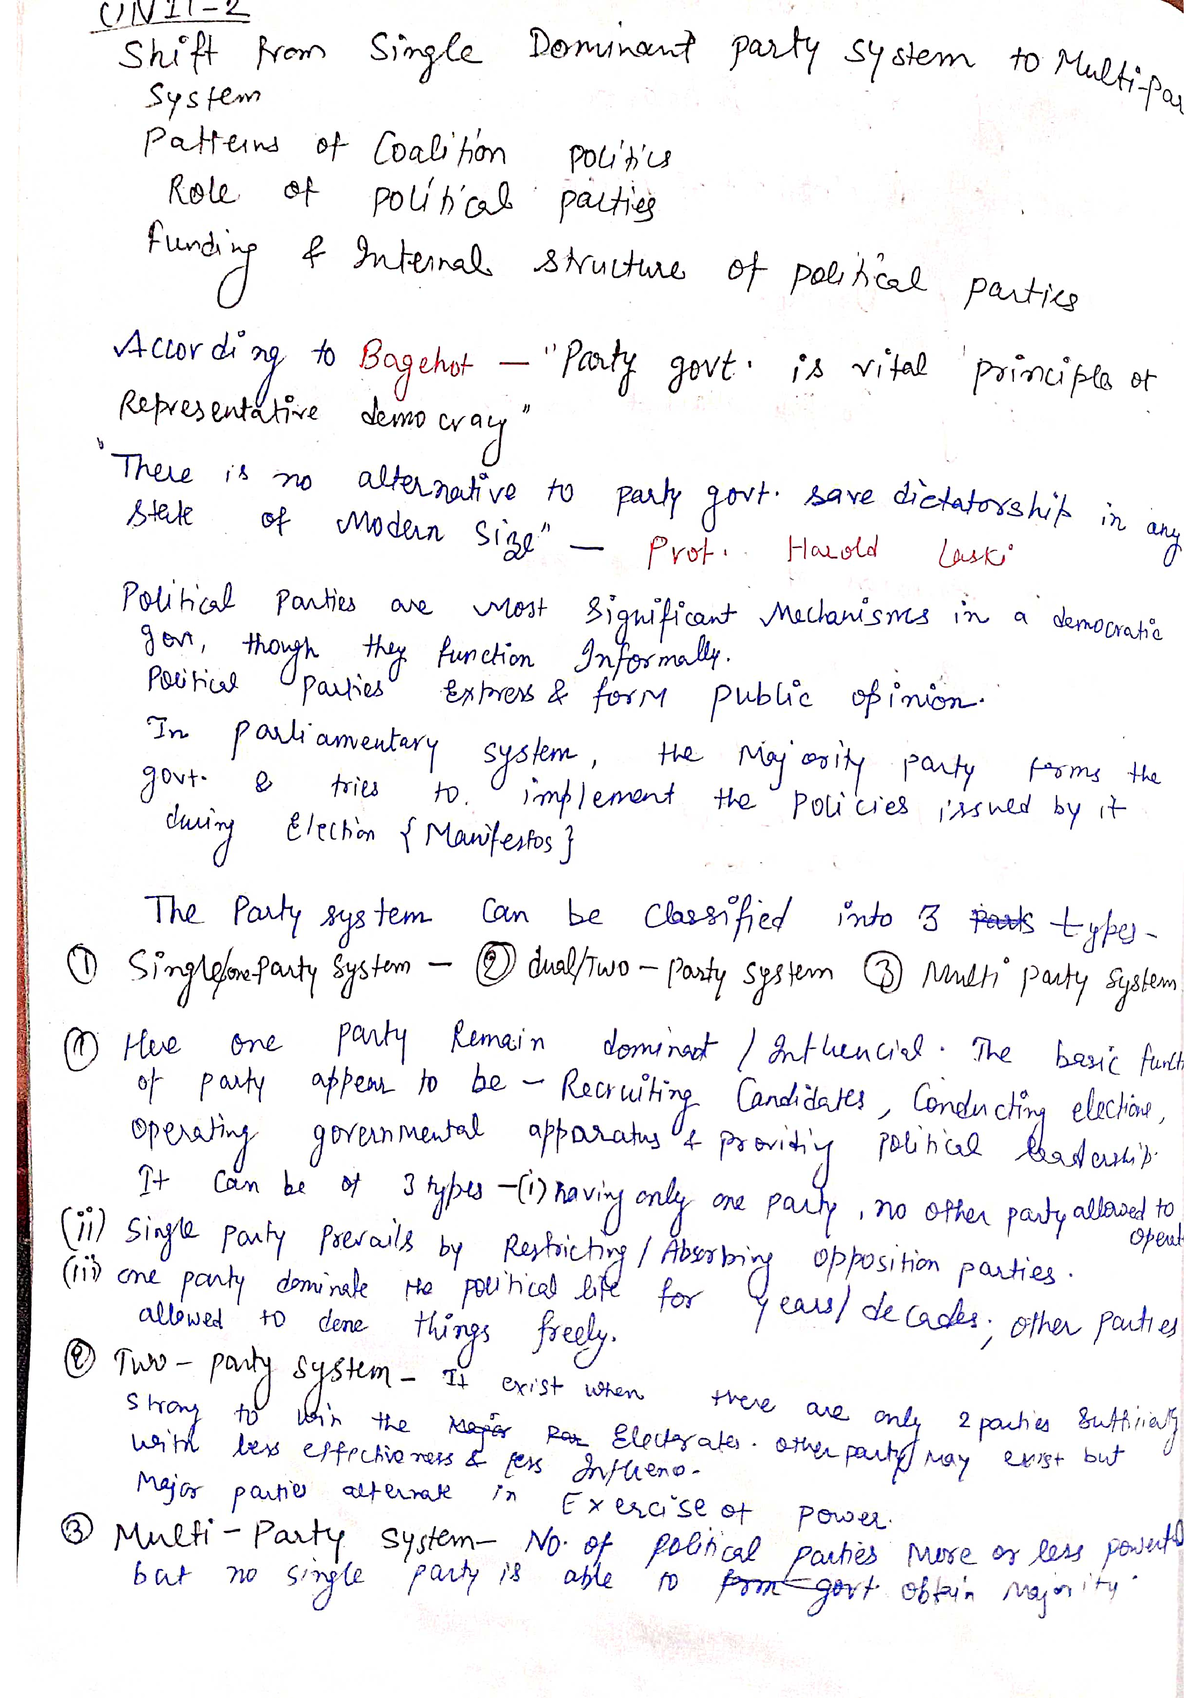 UNIT-2
Shift from Single Dominant party system to Multi-par
System
Patterns of Coalition politics
Role of political parties
Funding & Internal structure of political parties
According to Bagehot — "Party govt. is vital principle of
Representative democracy"
"There is no alternative to party govt. save dictatorship in any
State of Modern Size" — Prof. Harold Laski
Political Parties are most significant Mechanisms in a democratic
govt, though they function Informally.
Political parties express & form public opinion.
In parliamentary system, the Majority party forms the
govt. & tries to implement the policies issued by it
during Election {Manifestos}
The Party system can be classified into 3 parts types-
① Single/one-Party System — ② dual/Two-Party system ③ Multi party system
① Here one party Remain dominant / Influencial. The basic funct
of party appear to be - Recruiting Candidates, Conducting elections,
operating governmental apparatus & providing political leadership.
It can be of 3 types -(i) having only one party, no other party allowed to
operat
(ii) Single party prevails by Restricting / Absorbing opposition parties.
(iii) one party dominate the political life for years/decades; other parties
allowed to done things freely.
② Two-party system - It exist when there are only 2 parties sufficiently
strong to win the Major Par Electorates. other party may exist but
with less effectiveness & less Influence.
Major parties alternate in Exercise of power.
③ Multi-Party system- No. of political parties More or less powerful
but no single party is able to form govt. obtain majority.